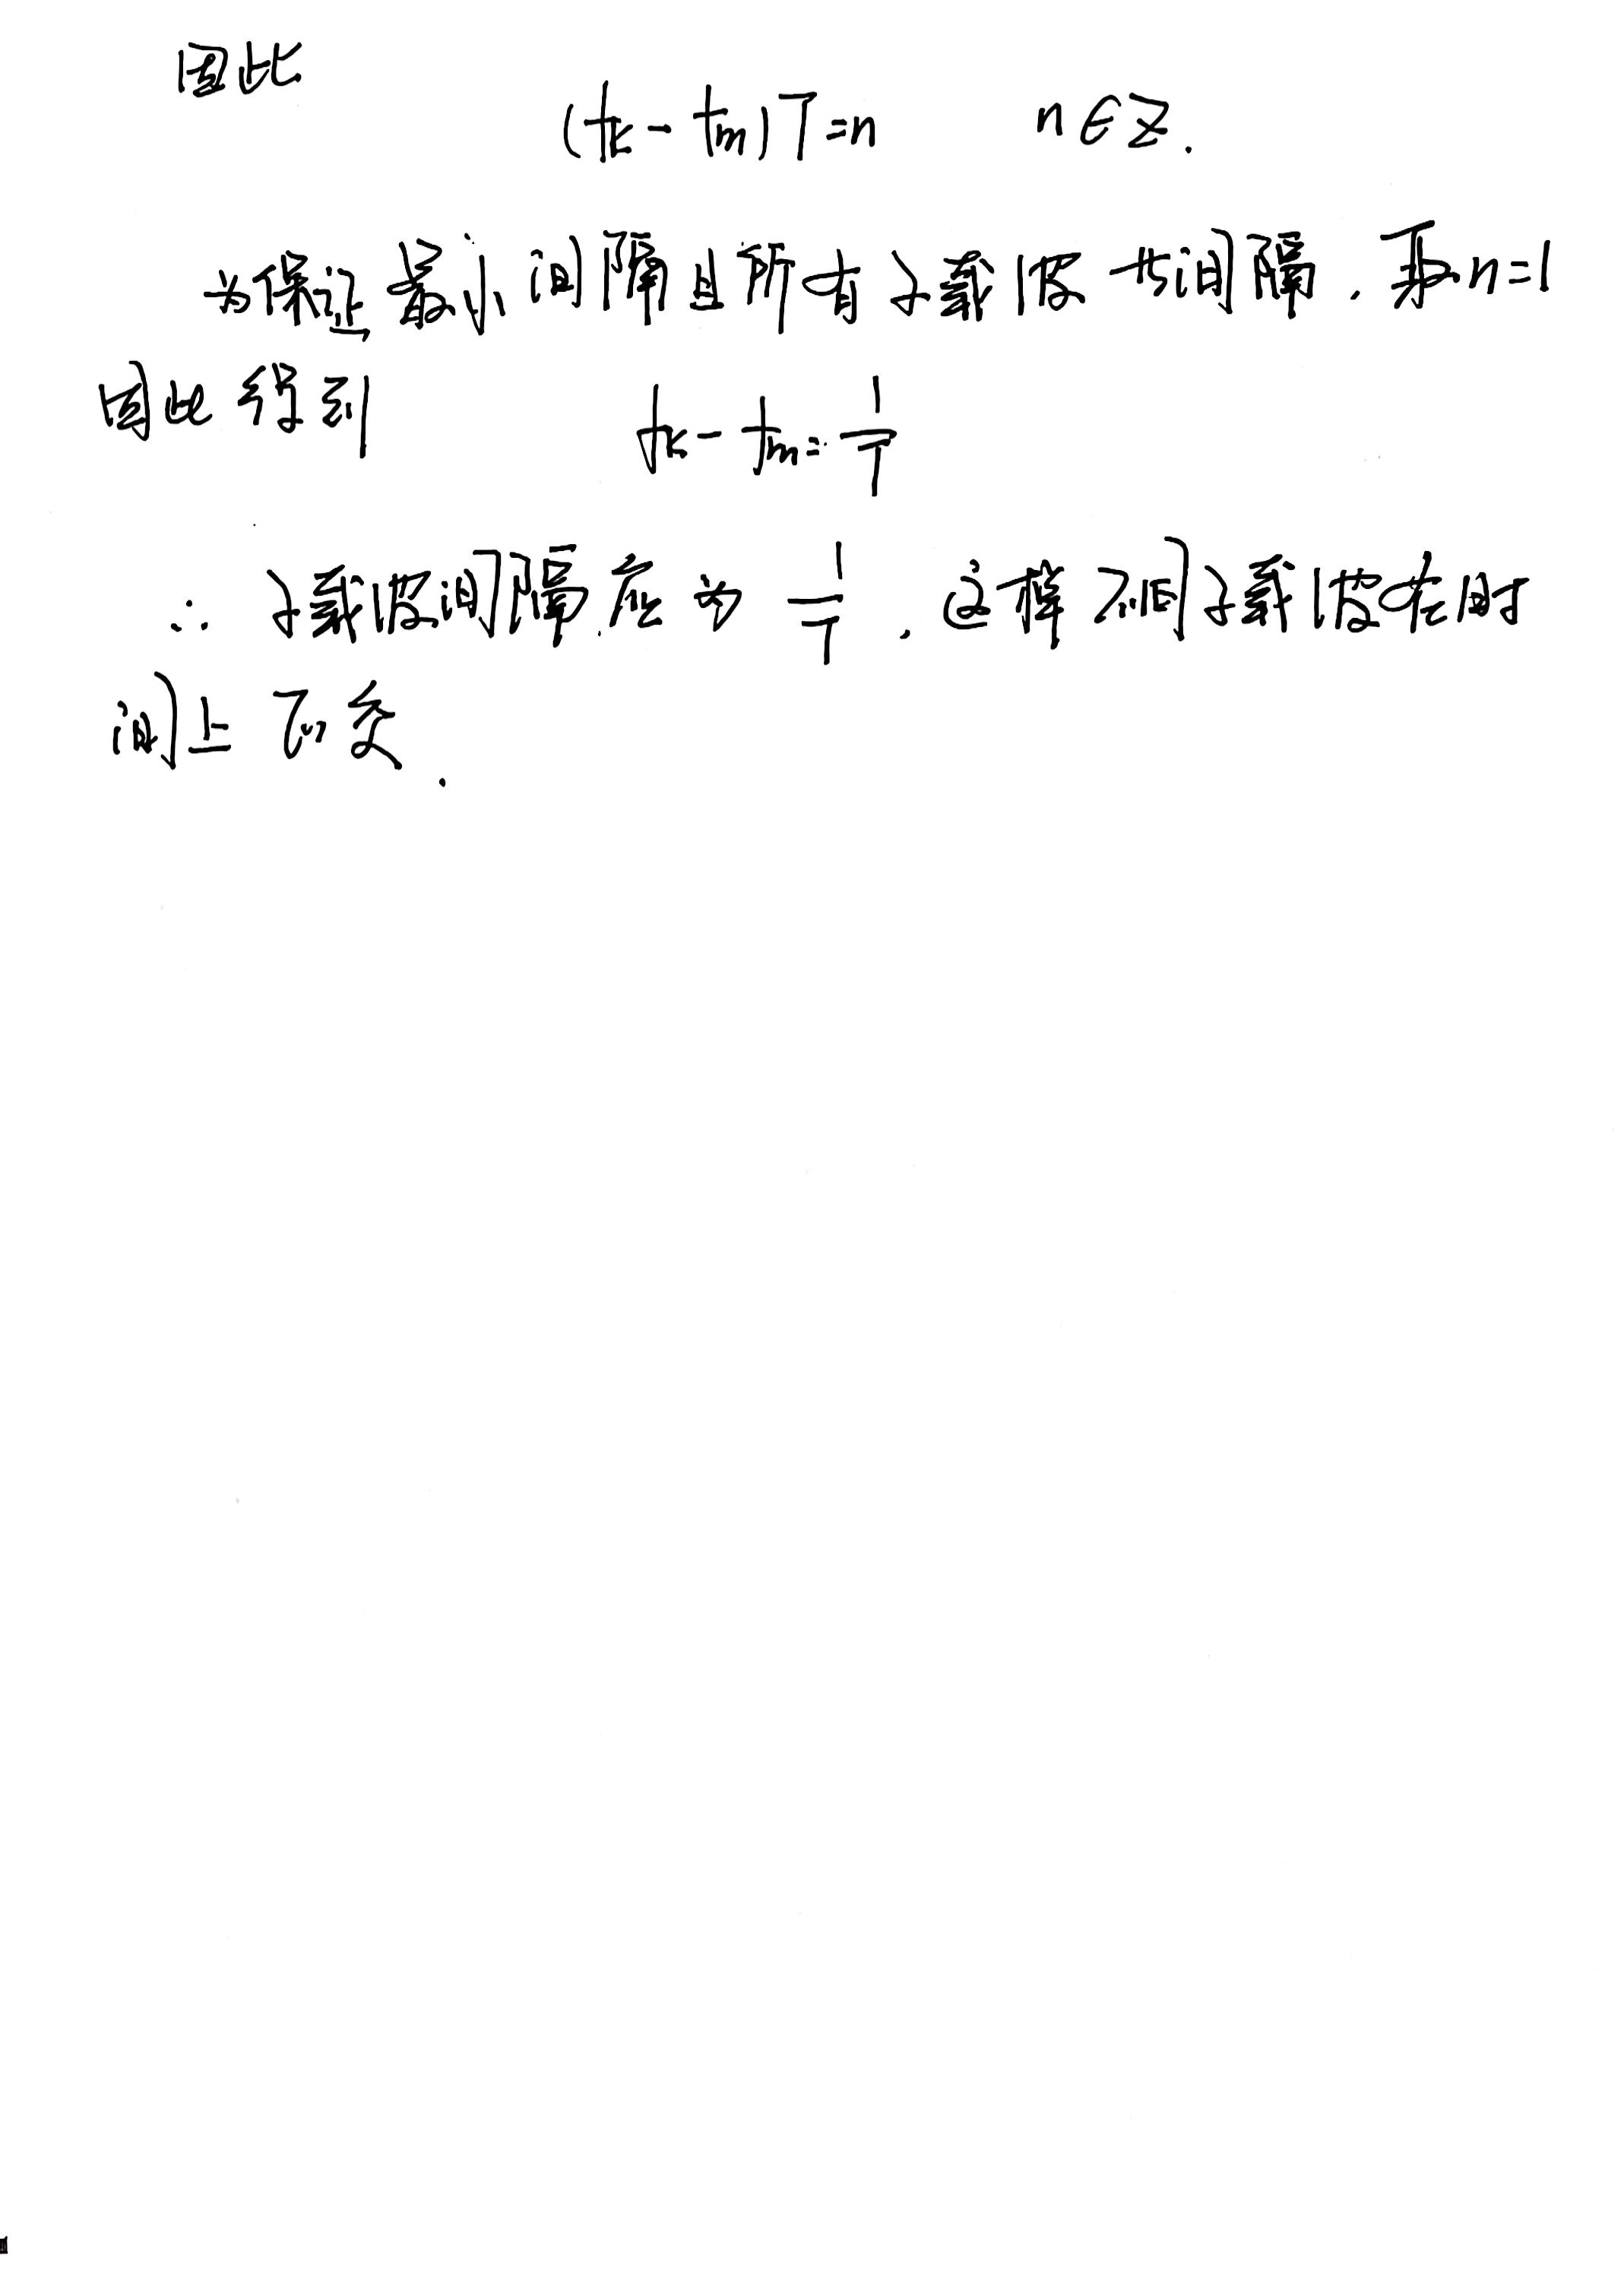 因此
(fk - fm)T = n    n∈Z.
为保证最小间隔且所有子载波共间隔, 取n=1
因此得到
fk - fm = 1/T
∴ 子载波间隔应为 1/T, 这样不同子载波在时
间上正交.